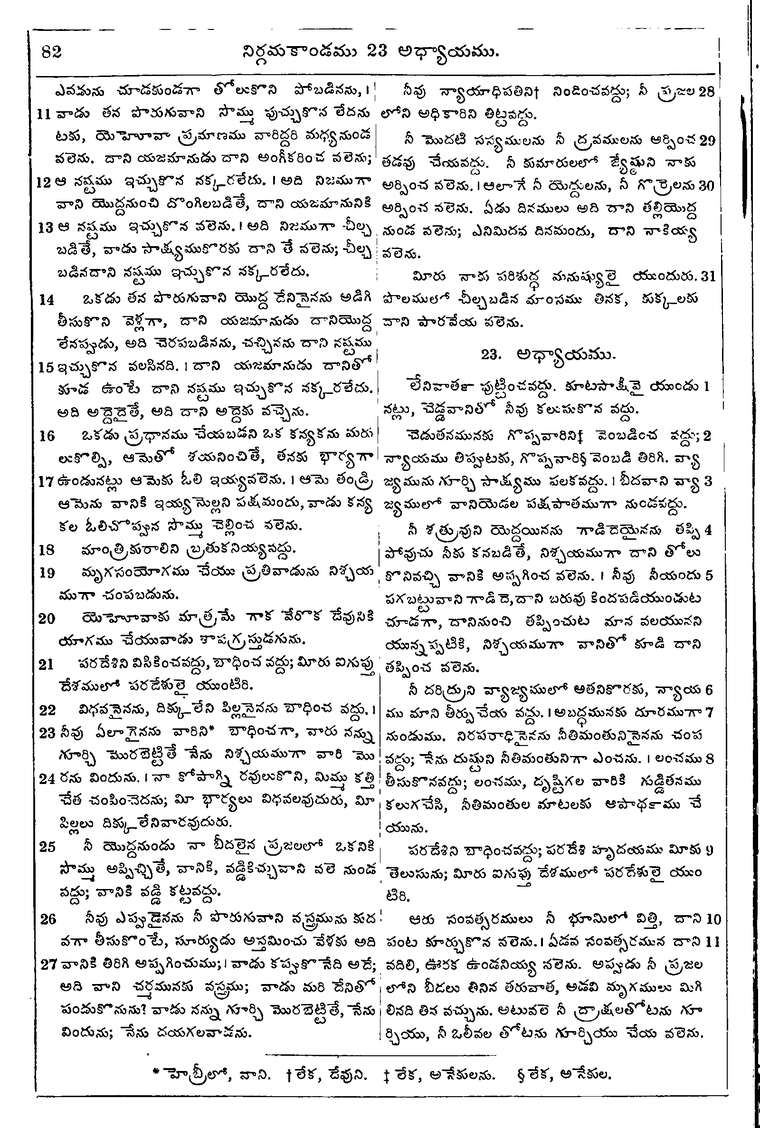 82
నిర్గమకాండము 23 అధ్యాయము.
ఎవడును చూడకుండగా తోలుకొని పోబడినను, ।
11 వాడు తన పొరుగువాని సొమ్ము పుచ్చుకొన లేదను
టకు, యెహోవా ప్రమాణము వారిద్దరి మధ్యనుండ
వలెను. దాని యజమానుడు దాని అంగీకరించ వలెను;
12 ఆ నష్టము ఇచ్చుకొన నక్కరలేదు. । అది నిజముగా
వాని యొద్దనుంచి దొంగిలబడితే, దాని యజమానునికి
13 ఆ నష్టము ఇచ్చుకొన వలెను. । అది నిజముగా చీల్చ
బడితే, వాడు సాక్ష్యముకొరకు దాని తే వలెను; చీల్చ
బడినదాని నష్టము ఇచ్చుకొన నక్కరలేదు.
14 ఒకడు తన పొరుగువాని యొద్ద దేనినైనను అడిగి
తీసుకొని వెళ్లగా, దాని యజమానుడు దానియొద్ద
లేనప్పుడు, అది చెరపబడినను, చచ్చినను దాని నష్టము
15 ఇచ్చుకొన వలసినది. । దాని యజమానుడు దానితో
కూడ ఉంటే దాని నష్టము ఇచ్చుకొన నక్కరలేదు.
అది అద్దెదైతే, అది దాని అద్దెకు వచ్చెను.
16 ఒకడు ప్రధానము చేయబడని ఒక కన్యకను మరు
లుకొల్పి, ఆమెతో శయనించితే, తనకు భార్యగా
17 ఉండునట్లు ఆమెకు ఓలి ఇయ్యవలెను. । ఆమె తండ్రి
ఆమెను వానికి ఇయ్యనొల్లని పక్షమందు, వాడు కన్య
కల ఓలిచొప్పున సొమ్ము చెల్లించ వలెను.
18 మాంత్రికురాలిని బ్రతుకనియ్యవద్దు.
19 మృగసంయోగము చేయు ప్రతివాడును నిశ్చయ
ముగా చంపబడును.
20 యెహోవాకు మాత్రమే గాక వేరొక దేవునికి
యాగము చేయువాడు శాపగ్రస్తుడగును.
21 పరదేశిని విసికించవద్దు, బాధించ వద్దు; మీరు ఐగుప్తు
దేశములో పరదేశులై యుంటిరి.
22 విధవనైనను, దిక్కులేని పిల్లనైనను బాధించ వద్దు. ।
23 నీవు ఏలాగైనను వారిని* బాధించగా, వారు నన్ను
గూర్చి మొరబెట్టితే నేను నిశ్చయముగా వారి మొ
24 రను విందును. । నా కోపాగ్ని రవులుకొని, మిమ్ము కత్తి
చేత చంపించెదను; మీ భార్యలు విధవలవుదురు, మీ
పిల్లలు దిక్కులేనివారవుదురు.
25 నీ యొద్దనుండు నా బీదలైన ప్రజలలో ఒకనికి
సొమ్ము అప్పిచ్చితే, వానికి, వడ్డికిచ్చువాని వలె నుండ
వద్దు; వానికి వడ్డి కట్టవద్దు.
26 నీవు ఎప్పుడైనను నీ పొరుగువాని వస్త్రమును కుద
వగా తీసుకొంటే, సూర్యుడు అస్తమించు వేళకు అది
27 వానికి తిరిగి అప్పగించుము; । వాడు కప్పుకొనేది అదే;
అది వాని చర్మమునకు వస్త్రము; వాడు మరి దేనితో
పండుకొనును? వాడు నన్ను గూర్చి మొరబెట్టితే, నేను
విందును; నేను దయగలవాడను.
నీవు న్యాయాధిపతిని† నిందించవద్దు; నీ ప్రజల 28
లోని అధికారిని తిట్టవద్దు.
నీ మొదటి సస్యములను నీ ద్రవములను అర్పించ 29
తడవు చేయవద్దు. నీ కుమారులలో జ్యేష్ఠుని నాకు
అర్పించ వలెను. । ఆలాగే నీ యెద్దులను, నీ గొర్రెలను 30
అర్పించ వలెను. ఏడు దినములు అది దాని తల్లియొద్ద
నుండ వలెను; ఎనిమిదవ దినమందు, దాని నాకియ్య
వలెను.
మీరు నాకు పరిశుద్ధ మనుష్యులై యుందురు. 31
పొలములో చీల్చబడిన మాంసము తినక, కుక్కలకు
దాని పారవేయ వలెను.
23. అధ్యాయము.
లేనివార్తకా పుట్టించవద్దు. కూటసాక్షివై యుండు 1
నట్లు, చెడ్డవానితో నీవు కలుసుకొన వద్దు.
చెడుతనమునకు గొప్పవారిని‡ వెంబడించ వద్దు; 2
న్యాయము తిప్పుటకు, గొప్పవారి§ వెంబడి తిరిగి. వ్యా
జ్యమును గూర్చి సాక్ష్యము పలకవద్దు. । బీదవాని వ్యా 3
జ్యములో వానియెడల పక్షపాతముగా నుండవద్దు.
నీ శత్రువుని యెద్దయినను గాడిదెయైనను తప్పి 4
పోవుచు నీకు కనబడితే, నిశ్చయముగా దాని తోలు
కొనివచ్చి వానికి అప్పగించ వలెను. । నీవు నీయందు 5
పగబట్టువాని గాడిదె, దాని బరువు కిందపడియుండుట
చూడగా, దానినుంచి తప్పించుట మాన వలయునని
యున్నప్పటికి, నిశ్చయముగా వానితో కూడి దాని
తప్పించ వలెను.
నీ దరిద్రుని వ్యాజ్యములో అతనికొరకు, న్యాయ 6
ము మాని తీర్పుచేయ వద్దు. । అబద్ధమునకు దూరముగా 7
నుండుము. నిరపరాధినైనను నీతిమంతునినైనను చంప
వద్దు; నేను దుష్టుని నీతిమంతునిగా ఎంచను. । లంచము 8
తీసుకొనవద్దు; లంచము, దృష్టిగల వారికి గుడ్డితనము
కలుగచేసి, నీతిమంతుల మాటలకు అపార్థకాము చే
యును.
పరదేశిని బాధించవద్దు; పరదేశి హృదయము మీకు 9
తెలుసును; మీరు ఐగుప్తు దేశములో పరదేశులై యుం
టిరి.
ఆరు సంవత్సరములు నీ భూమిలో విత్తి, దాని 10
పంట కూర్చుకొన వలెను. । ఏడవ సంవత్సరమున దాని 11
వదిలి, ఊరక ఉండనియ్య వలెను. అప్పుడు నీ ప్రజల
లోని బీదలు తినిన తరువాత, అడవి మృగములు మిగి
లినది తిన వచ్చును. అటువలె నీ ద్రాక్షలతోటను గూ
ర్చియు, నీ ఒలీవల తోటను గూర్చియు చేయ వలెను.
* హెబ్రీలో, వాని. † లేక, దేవుని. ‡ లేక, అనేకులను. § లేక, అనేకుల.